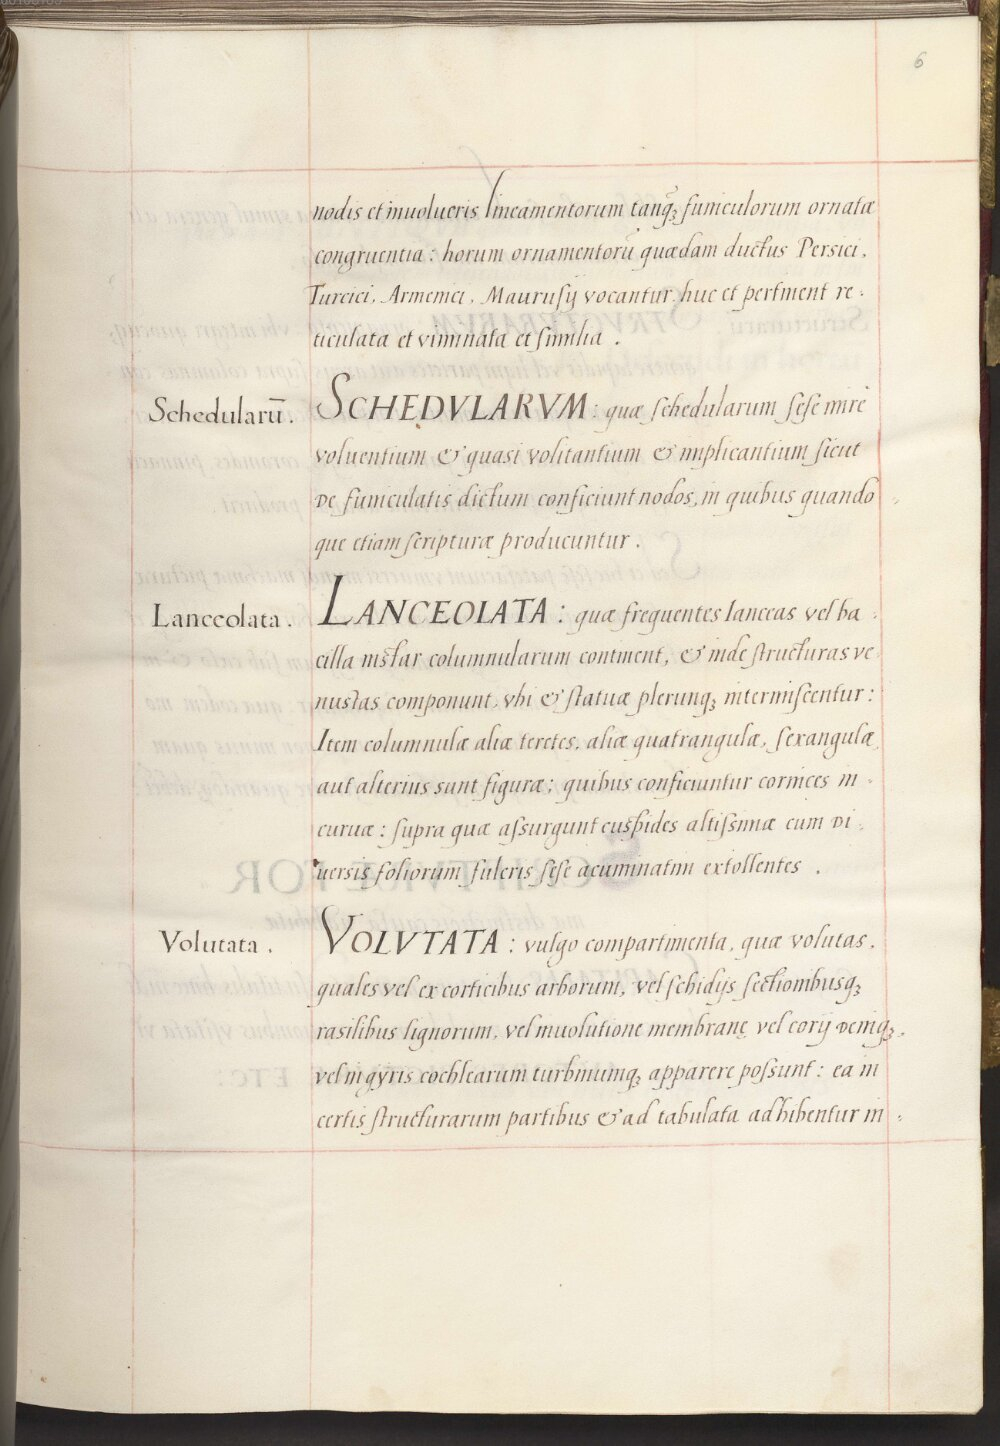 6
nodis et inuolucris lineamentorum tanq̃ꝫ funiculorum ornatæ
congruentia : horum ornamentorũ quædam ductus Persici ,
Turcici , Armenici , Maurusij vocantur . huc et pertinent re .
ticulata et viminata et similia .
Schedularū .
SCHEDVLARVM : quæ schedularum sese mire
voluentium & quasi volitantium & implicantium sicut
de funiculatis dictum conficiunt nodos , in quibus quando
que etiam scripturæ producuntur .
Lanceolata .
LANCEOLATA : quæ frequentes lanceas vel ba .
cilla instar columnularum continent , & inde structuras ve
nustas componunt , vbi & statuæ plerunqꝫ intermiscentur :
Item columnulæ aliæ teretes , aliæ quatrangulæ , sexangulæ
aut alterius sunt figuræ ; quibus conficiuntur cornices in -
curuæ : supra quæ assurgunt cuspides altissimæ cum di .
uersis foliorum fulcris sese acuminatim extollentes .
Volutata .
VOLVTATA : vulgo compartimenta , quæ volutas ,
quales vel ex corticibus arborum , vel schidijs sectionibusqꝫ
rasilibus lignorum , vel inuolutione membranę vel corij deniqꝫ ,
vel in gyris cochlearum turbinumqꝫ apparere possunt : ea in
certis structurarum partibus & ad tabulata adhibentur in -